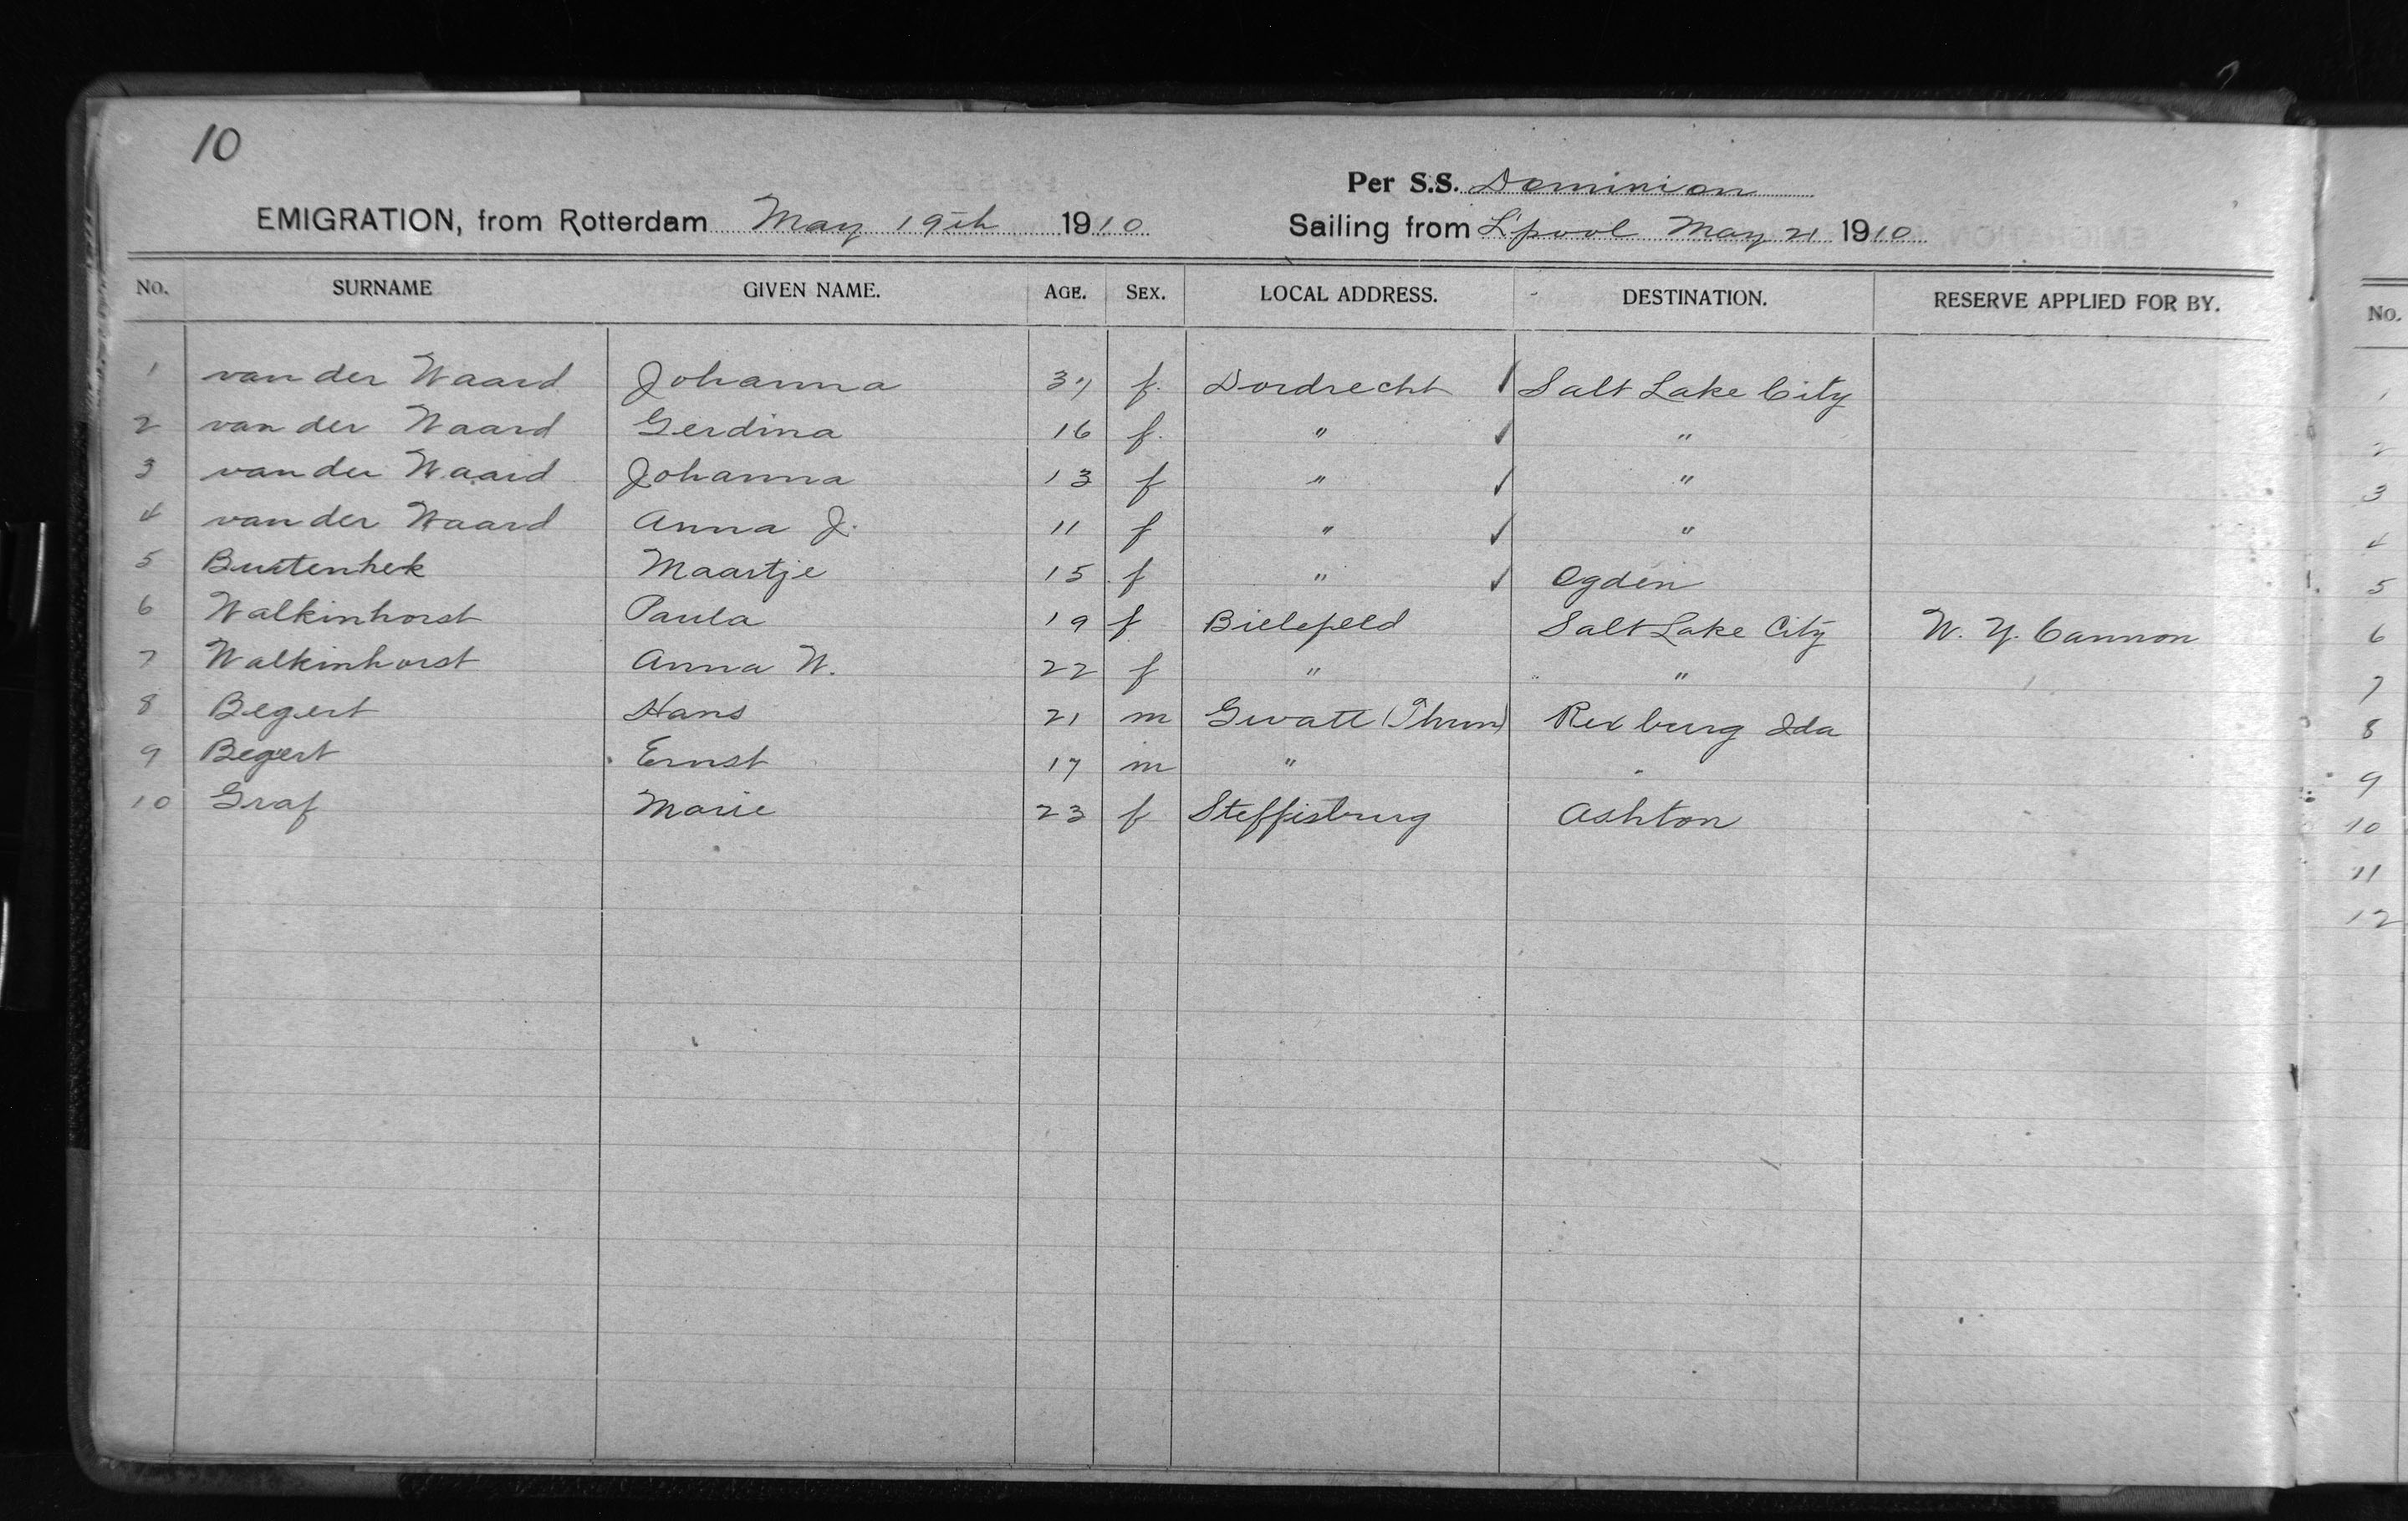 10
Per S.S. Dominion
EMIGRATION, from Rotterdam May 19th 1910 Sailing from L'pool May 21 1910
No. SURNAME GIVEN NAME. AGE. SEX. LOCAL ADDRESS. DESTINATION. RESERVE APPLIED FOR BY. No.
1 van der Waard Johanna 37 f. Dordrecht ✓ Salt Lake City 1
2 van der Waard Gerdina 16 f. " ✓ " 2
3 van der Waard Johanna 13 f " ✓ " 3
4 van der Waard Anna J. 11 f " ✓ " 4
5 Buitenhek Maartje 15 f " ✓ Ogden 5
6 Walkinhorst Paula 19 f Bielefeld Salt Lake City W. Y. Cannon 6
7 Walkinhorst Anna W. 22 f " " 7
8 Begert Hans 21 m Gwatt (Thun) Rexburg Ida 8
9 Begert Ernst 17 m " " 9
10 Graf Marie 23 f Steffisburg Ashton 10
11
12